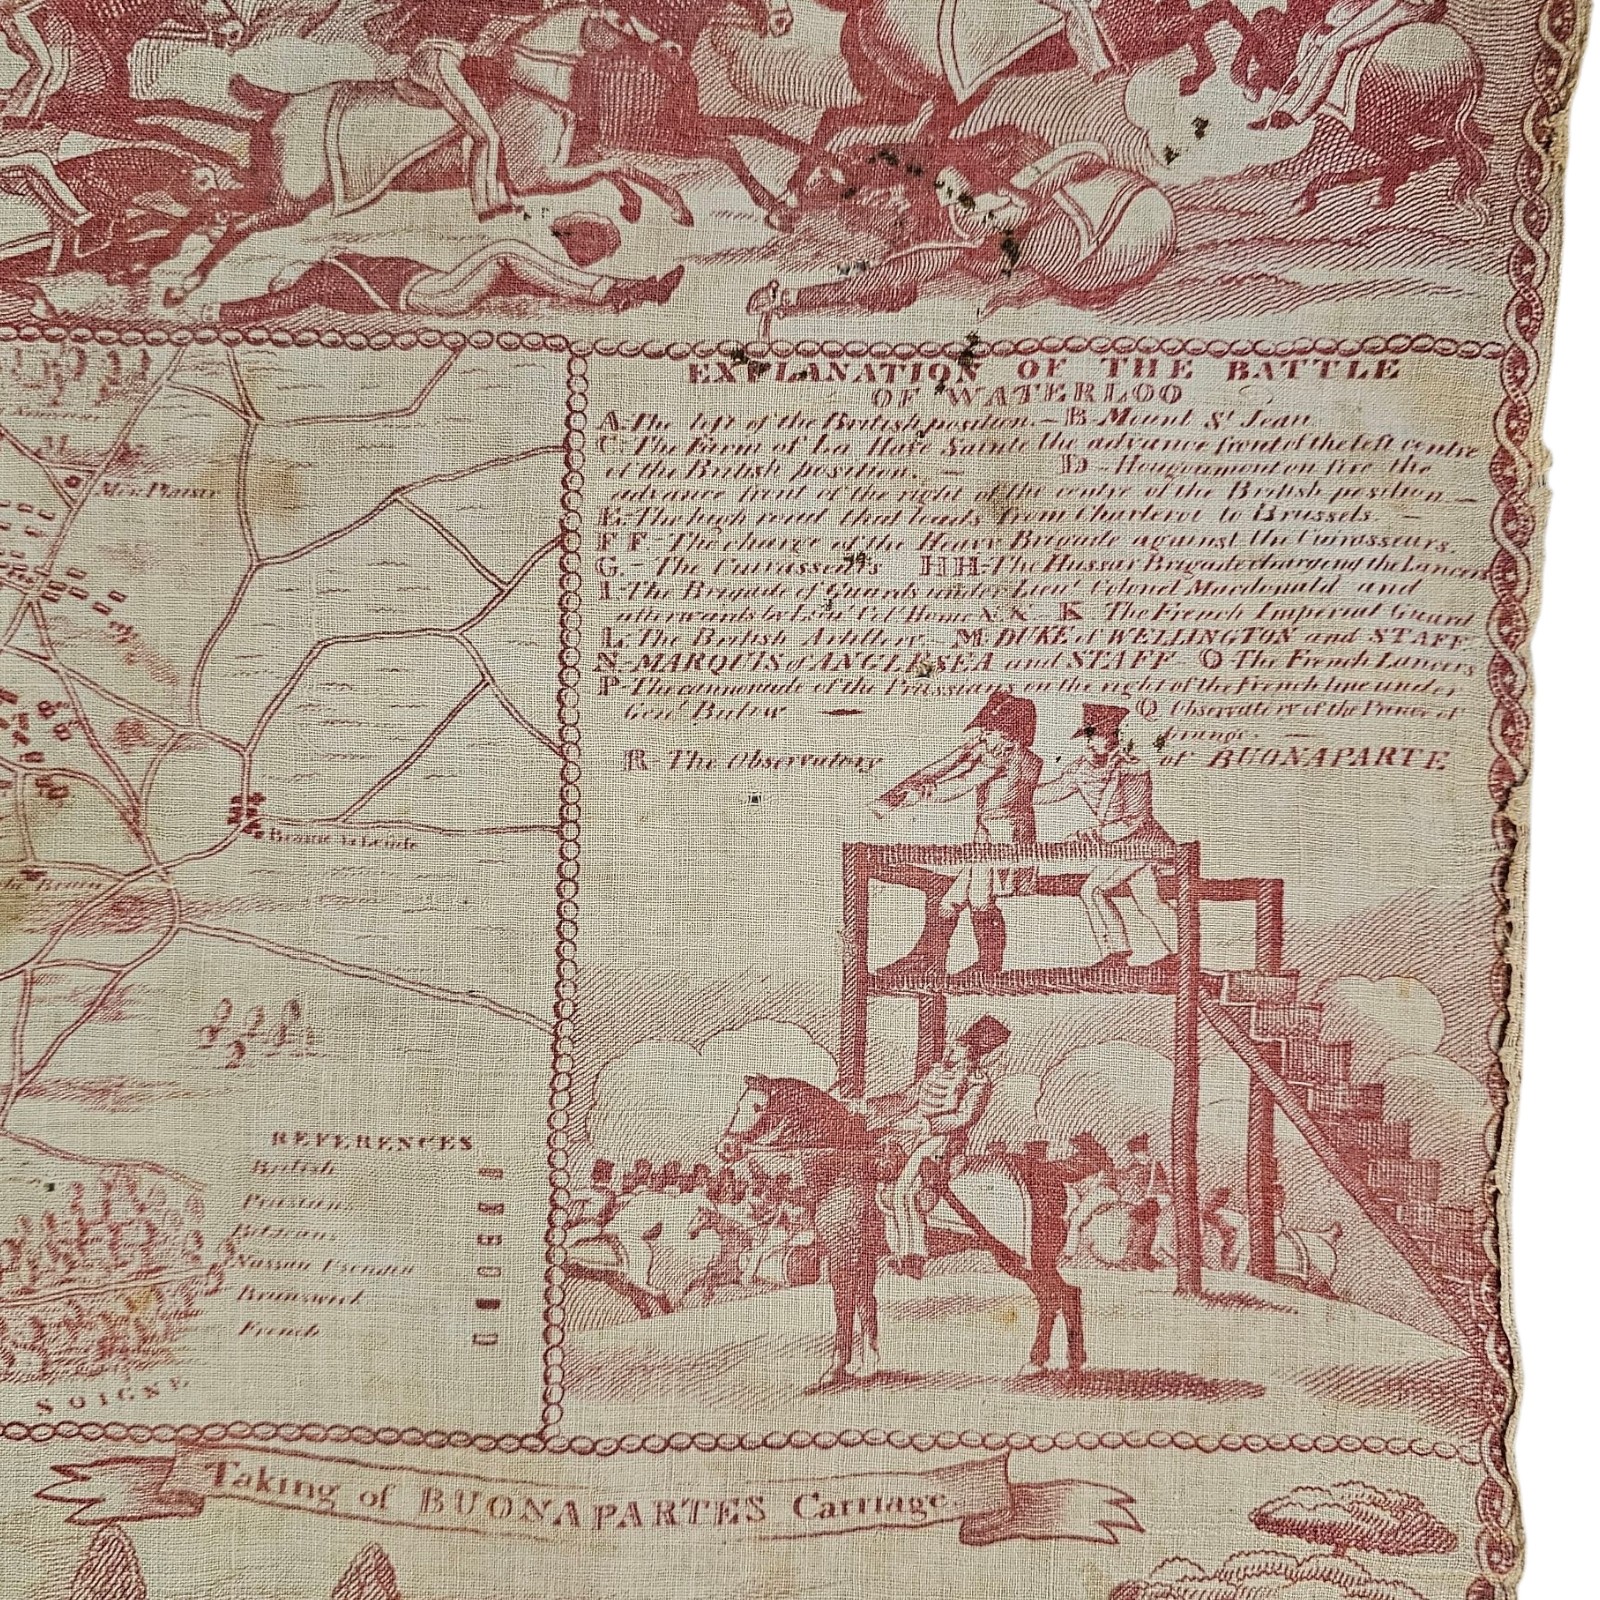 EXPLANATION OF THE BATTLE
OF WATERLOO
A-The left of the British position.- B-Mount St Jean
C-The Farm of La Haye Sainte the advance front of the left centre
of the British position. - D-Hougoumont on fire the
advance front of the right of the centre of the British position.-
E-The high road that leads from Charleroi to Brussels. -
F F.-The charge of the Heavy Brigade against the Cuirasseurs.
G.-The Cuirasseurs HH-The Hussar Brigade charging the Lancers
I-The Brigade of Guards under Lieut Colonel Macdonald and
afterwards by Lieut Col Home XX K The French Imperial Guard
L-The British Artillery M-DUKE of WELLINGTON and STAFF
N-MARQUIS of ANGLESEA and STAFF- O-The French Lancers
P-The cannonade of the Prussians on the right of the French line under
Genl Bulow - Q Observatory of the Prince of
Orange. -
R-The Observatory of BUONAPARTE
Mon Plaisir
REFERENCES
British
Prussians
Belgians
Nassau Usendin
Brunswick
French
SOIGNY
Taking of BUONAPARTES Carriage